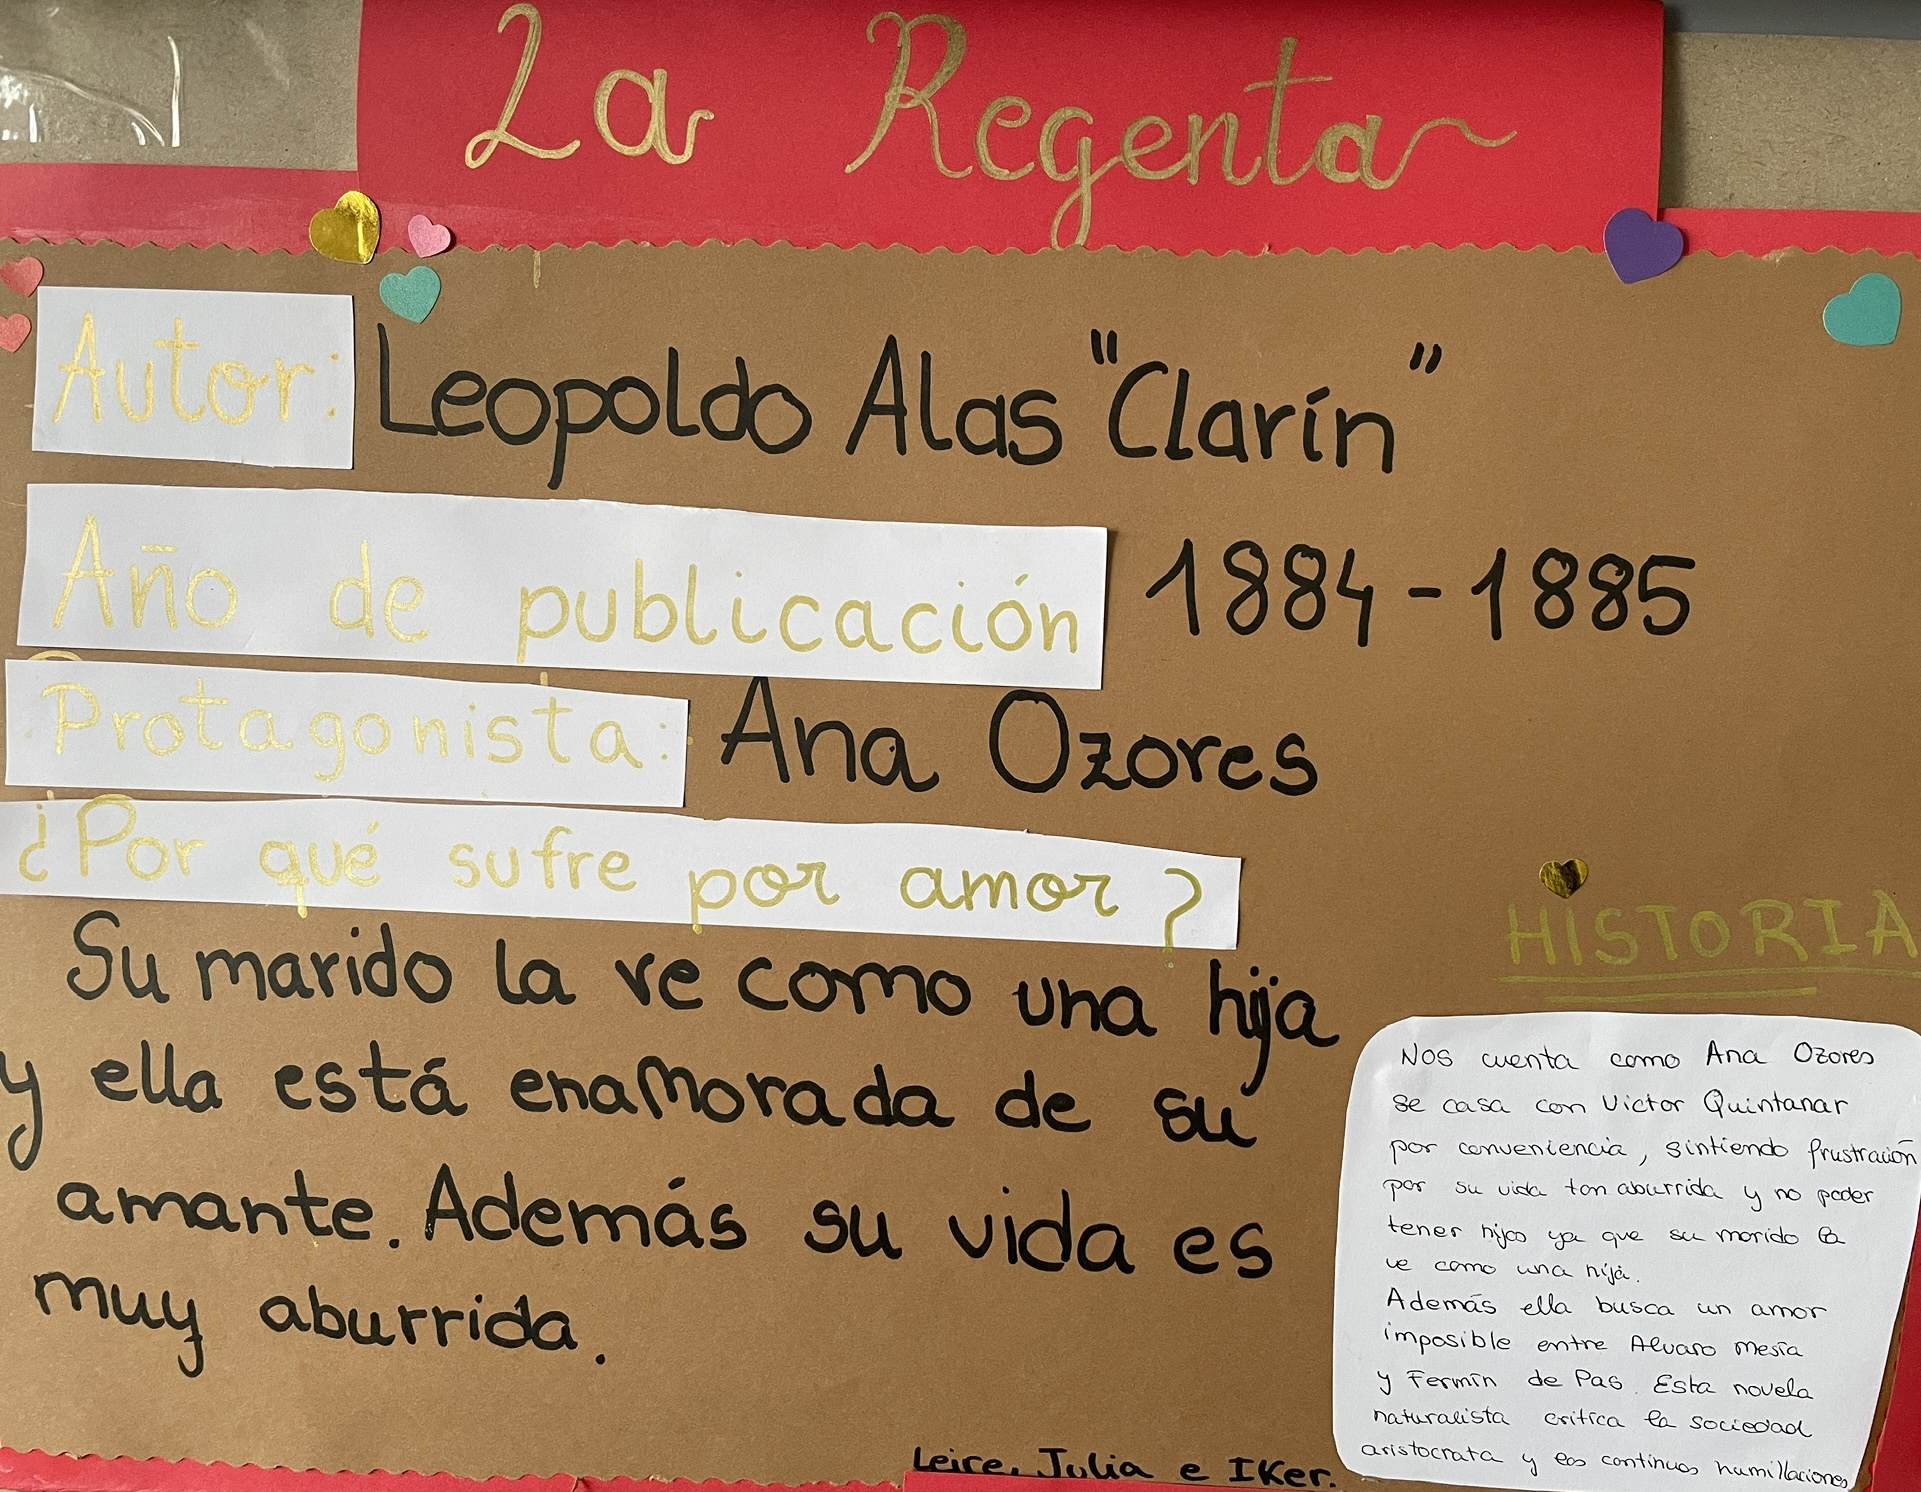 La Regenta
Autor: Leopoldo Alas "Clarín"
Año de publicación 1884-1885
Protagonista: Ana Ozores
¿Por qué sufre por amor?
Su marido la ve como una hija
y ella está enamorada de su
amante. Además su vida es
muy aburrida.
HISTORIA
Nos cuenta como Ana Ozores
se casa con Victor Quintanar
por conveniencia, sintiendo frustración
por su vida tan aburrida y no poder
tener hijos ya que su marido la
ve como una hija.
Además ella busca un amor
imposible entre Alvaro Mesía
y Fermín de Pas. Esta novela
naturalista critica la sociedad
aristocrata y los continuos humillaciones
Leire, Julia e Iker.